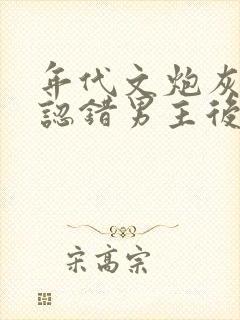 年代文炮灰
認錯男主後
宋高宗